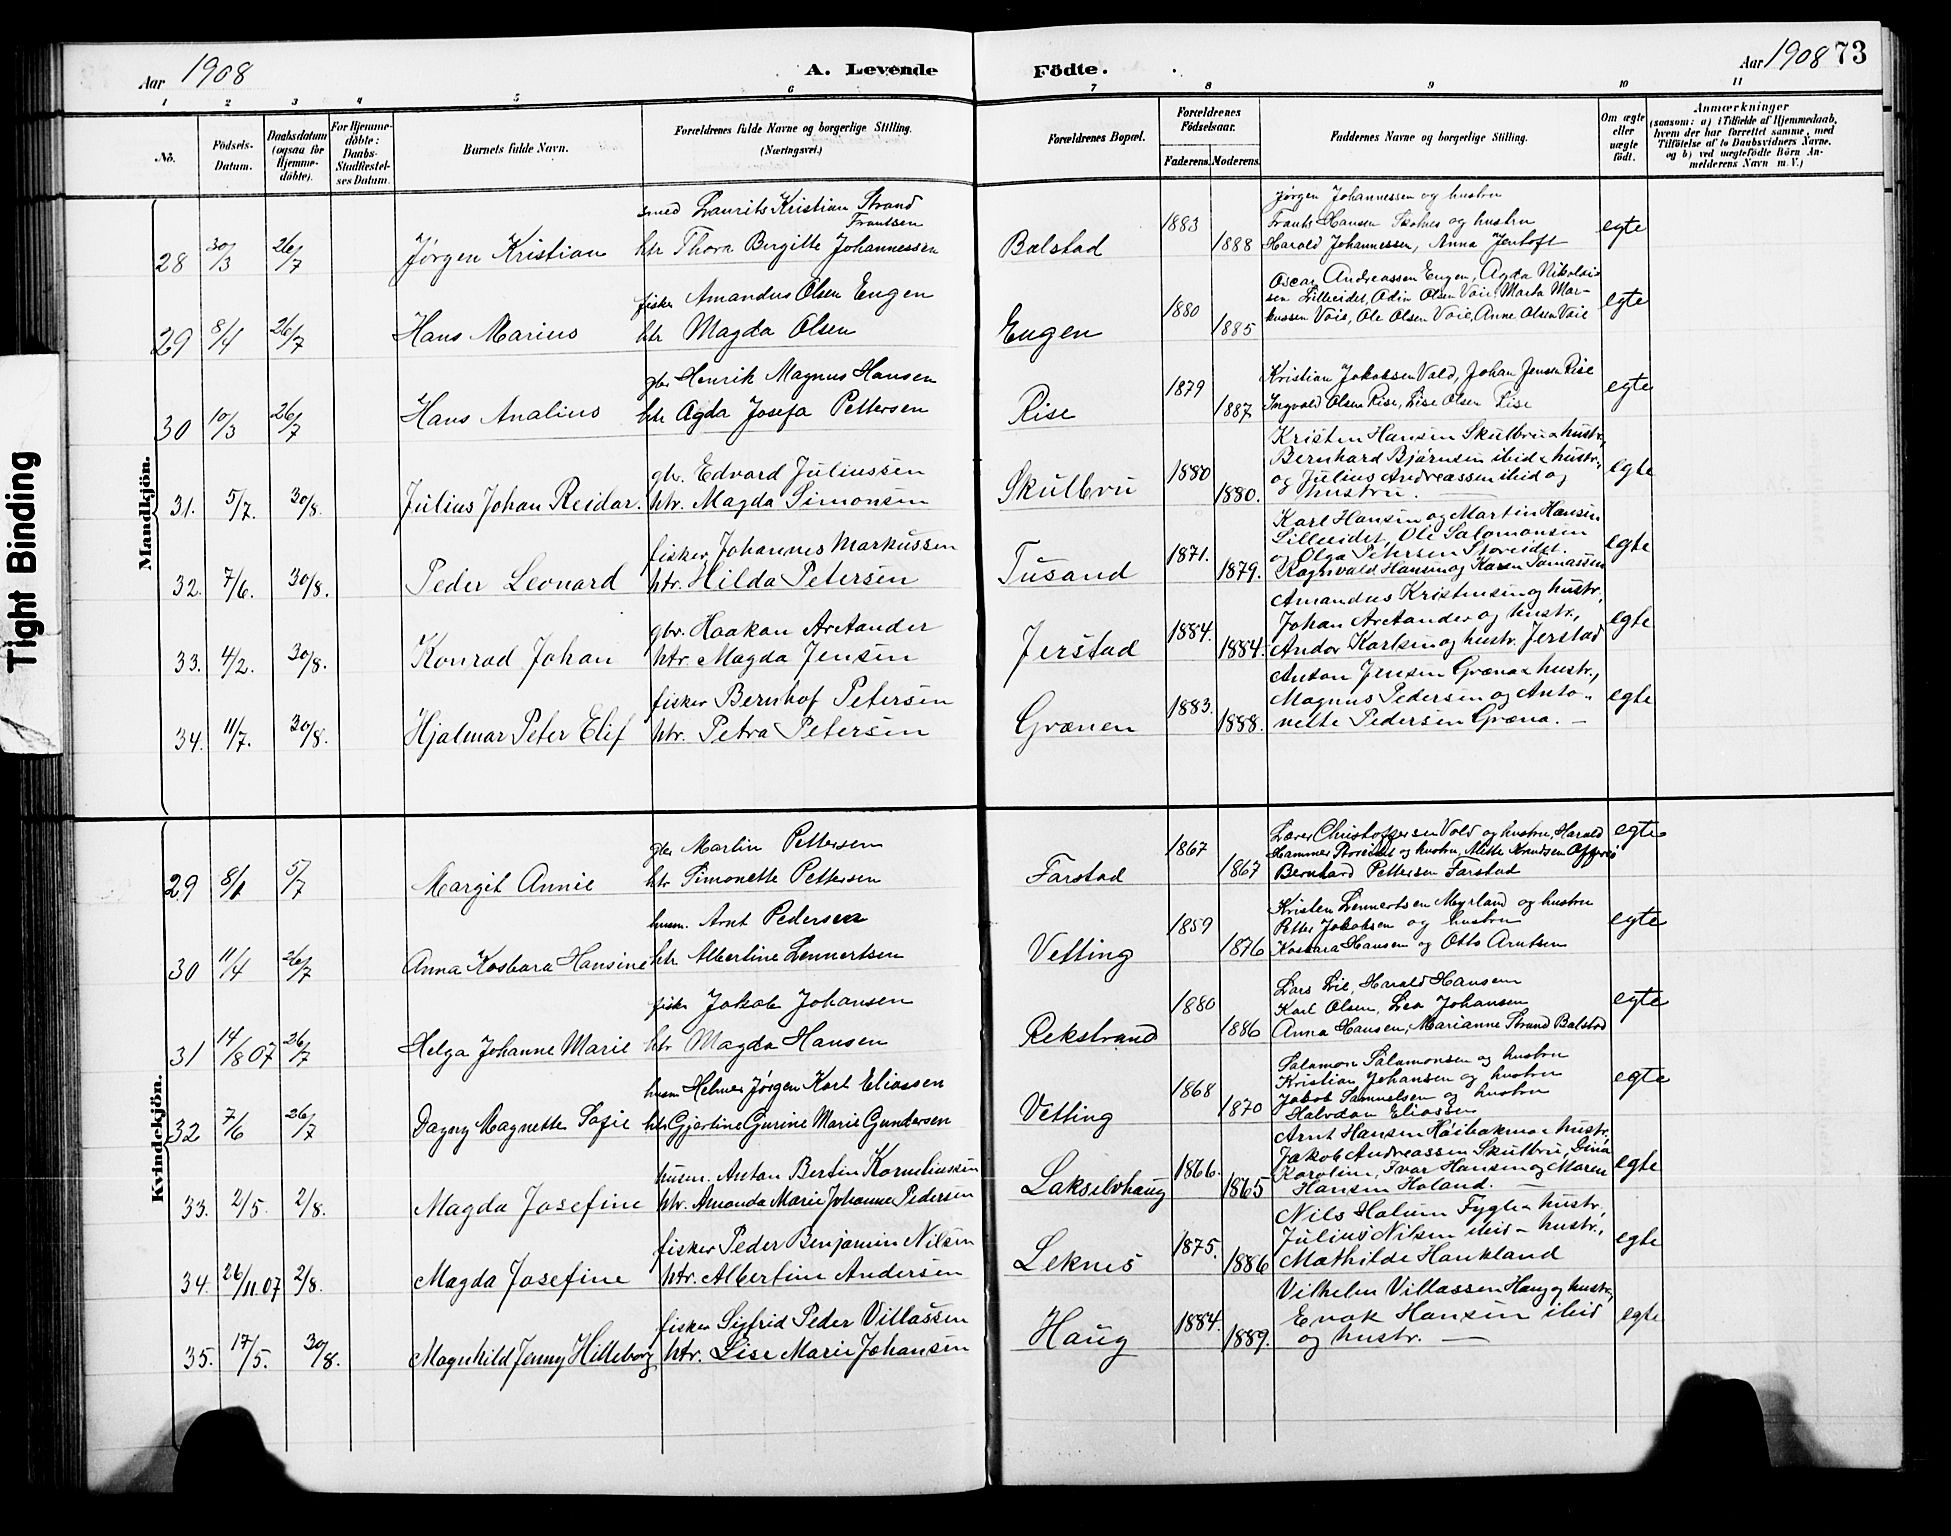 Aar 1908
A. Levende Födte.
Aar 1908 73
1 2 3 4 5 6 7 8 9 10 11
No.
Födsels-Datum.
Daabsdatum (ogsaa for Hjemme-döbte).
For Hjemme-döbte: Daabs-Stadfæstel-ses Datum.
Barnets fulde Navn.
Forældrenes fulde Navne og borgerlige Stilling.
(Næringsvei.)
Forældrenes Bopæl.
Forældrenes Födselsaar.
Faderens. Moderens.
Faddernes Navne og borgerlige Stilling.
Om ægte eller uægte födt.
Anmærkninger
(saasom: a) i Tilfælde af Hjemmedaab, hvem der har forrettet samme, med Tilföielse af to Daabsvidners Navne, og b) ved uægtefödte Börn An-melderens Navn m. V.)
Tight Binding
Mandkjön.
smed Laurits Kristian Strand
Frantsen
28 30/3 26/7 Jørgen Kristian htr Thora Birgitte Johannessen
Balstad 1883 1888
Jørgen Johannessen og hustru
Frants Hansen Skotnes og hustru
Harald Johannessen, Anna Jentoft
egte
fisker Amandus Olsen Eugen
29 8/4 26/7 Hans Marius htr Magda Olsen
Eugen 1880 1885
Oscar Andreassen Eugen, Agda Nikolai-
sen Lilleeidet, Odin Olsen Voie, Marta Mar-
kussen Voie, Ole Olsen Voie, Anne Olsen Voie
egte
gbr Henrik Magnus Hansen
30 10/3 26/7 Hans Analius htr Agda Josefa Pettersen
Rise 1879 1887
Kristian Jakobsen Vold, Johan Jensen Rise
Ingvald Olsen Rise, Lise Olsen Rise
egte
gbr. Edvard Juliussen
31. 5/7. 30/8. Julius Johan Reidar. htr. Magda Simonsen
Skulbru 1880 1880.
Kristen Hansen Skulbru & hustr.,
Bernhard Bjørnsen ibid & hustr.,
og Julius Andreassen ibid og
hustru. —
egte
fisker Johannes Markussen
32. 7/6. 30/8. Peder Leonard htr. Hilda Petersen
Tusand 1871. 1879.
Karl Hansen og Martin Hansen
Lilleeidet, Ole Salomonsen
og Olga Petersen Storeidet.
Ragnvald Hansen og Karen Tomassen
egte
gbr. Haakon Arctander
33. 4/2. 30/8. Konrad Johan htr. Magda Jensen
Jerstad 1884. 1884.
Amandus Kristensen og hustr.,
Johan Arctander og hustr.,
Andor Karlsen og hustr. Jerstad
egte
fisker Bernhof Petersen
34. 11/7. 30/8. Hjalmar Peter Elif htr. Petra Petersen
Grænen 1883. 1888.
Anton Jensen Græna & hustr.,
Magnus Pedersen og Anto-
nette Pedersen Græna. —
egte
Kvindekjön.
gbr Martin Pettersen
29 8/1 5/7 Margit Annie htr Simonette Pettersen
Farstad 1867 1867
Christoffersen Vold og hustru, Harald
Hammer Storeidet og hustru, Mitte Knudsen
Bernhard Pettersen Farstad
egte
husm. Arnt Pedersen
30 11/4 26/7 Anna Kosbara Hansine htr Albertine Lennertsen
Vetting 1859 1876
Kristen Lennertsen Myrland og hustru
Petter Jakobsen og hustru
Kosbara Hansen og Otto Arntsen
egte
fisker Jakob Johansen
31 14/8 07 26/7 Helga Johanne Marie htr Magda Hansen
Rekstrand 1880 1886
Lars Lie, Harald Hansen
Karl Olsen, Lea Johansen
Anna Hansen, Marianne Strand Balstad
egte
husm Helmer Jørgen Karl Eliassen
32 7/6 26/7 Dagny Magnette Sofie htr Gjertine Gurine Marie Gundersen
Vetting 1868 1870
Salamon Salamonsen og hustru
Kristian Johansen og hustru
Jakob Samuelsen og hustru
Halvdan Eliassen
egte
husm. Anton Bertin Korneliussen
33. 2/5. 2/8. Magda Josefine htr. Amanda Marie Johanna Pedersen
Lakselvhaug 1866. 1865
Arnt Hansen Höibakmo & hustr.,
Jakob Andreassen Skulbru, Dina
Karoline, Ivar Hansen og Maren
Hansen Holand. —
egte
fisker Peder Benjamin Nilsen
34. 26/11.07 2/8. Magda Josefine htr. Albertine Andersen
Leknes 1875. 1886
Nils Holum Fygle & hustr.,
Julius Nilsen ibid & hustr.,
Mathilde Haukland
egte
fisker Sigfrid Peder Villassen
35. 17/5. 30/8. Magnhild Jenny Hilleborg htr. Lise Marie Johansen
Haug 1884. 1889.
Vilhelm Villassen Haug og hustr.,
Enok Hansen ibid
og hustr. —
egte